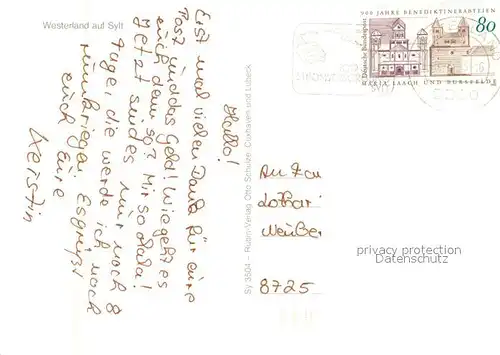 Westerland auf Sylt
Hallo!
Erst mal vielen Dank für eure
Post und das Geld! Wie geht es
euch denn so? Mir so lala!
Jetzt sind es nur noch 8
Tage die werde ich noch
rumkriegen. Es grüßt
euch Eure
Kerstin
Sy 3504 – Rubin-Verlag Otto Schulze, Cuxhaven und Lübeck
900 JAHRE BENEDIKTINERABTEIEN
80
Deutsche Bundespost
MARIA LAACH UND BURSFELDE
SYLT
An Fam
Lothar
8725
privacy protection
Datenschutz